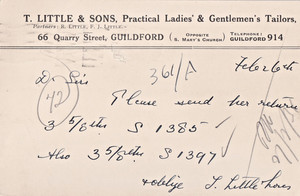 T. LITTLE & SONS, Practical Ladies' & Gentlemen's Tailors,
Partners: R. LITTLE, F. J. LITTLE.
66 Quarry Street, GUILDFORD (OPPOSITE S. MARY'S CHURCH) TELEPHONE: GUILDFORD 914
Feb 26th
361/A
Dr Sirs
42
Please send per return
3 5/8ths S 1385
Also 3 5/8ths S 1397
& oblige T. Little & Sons